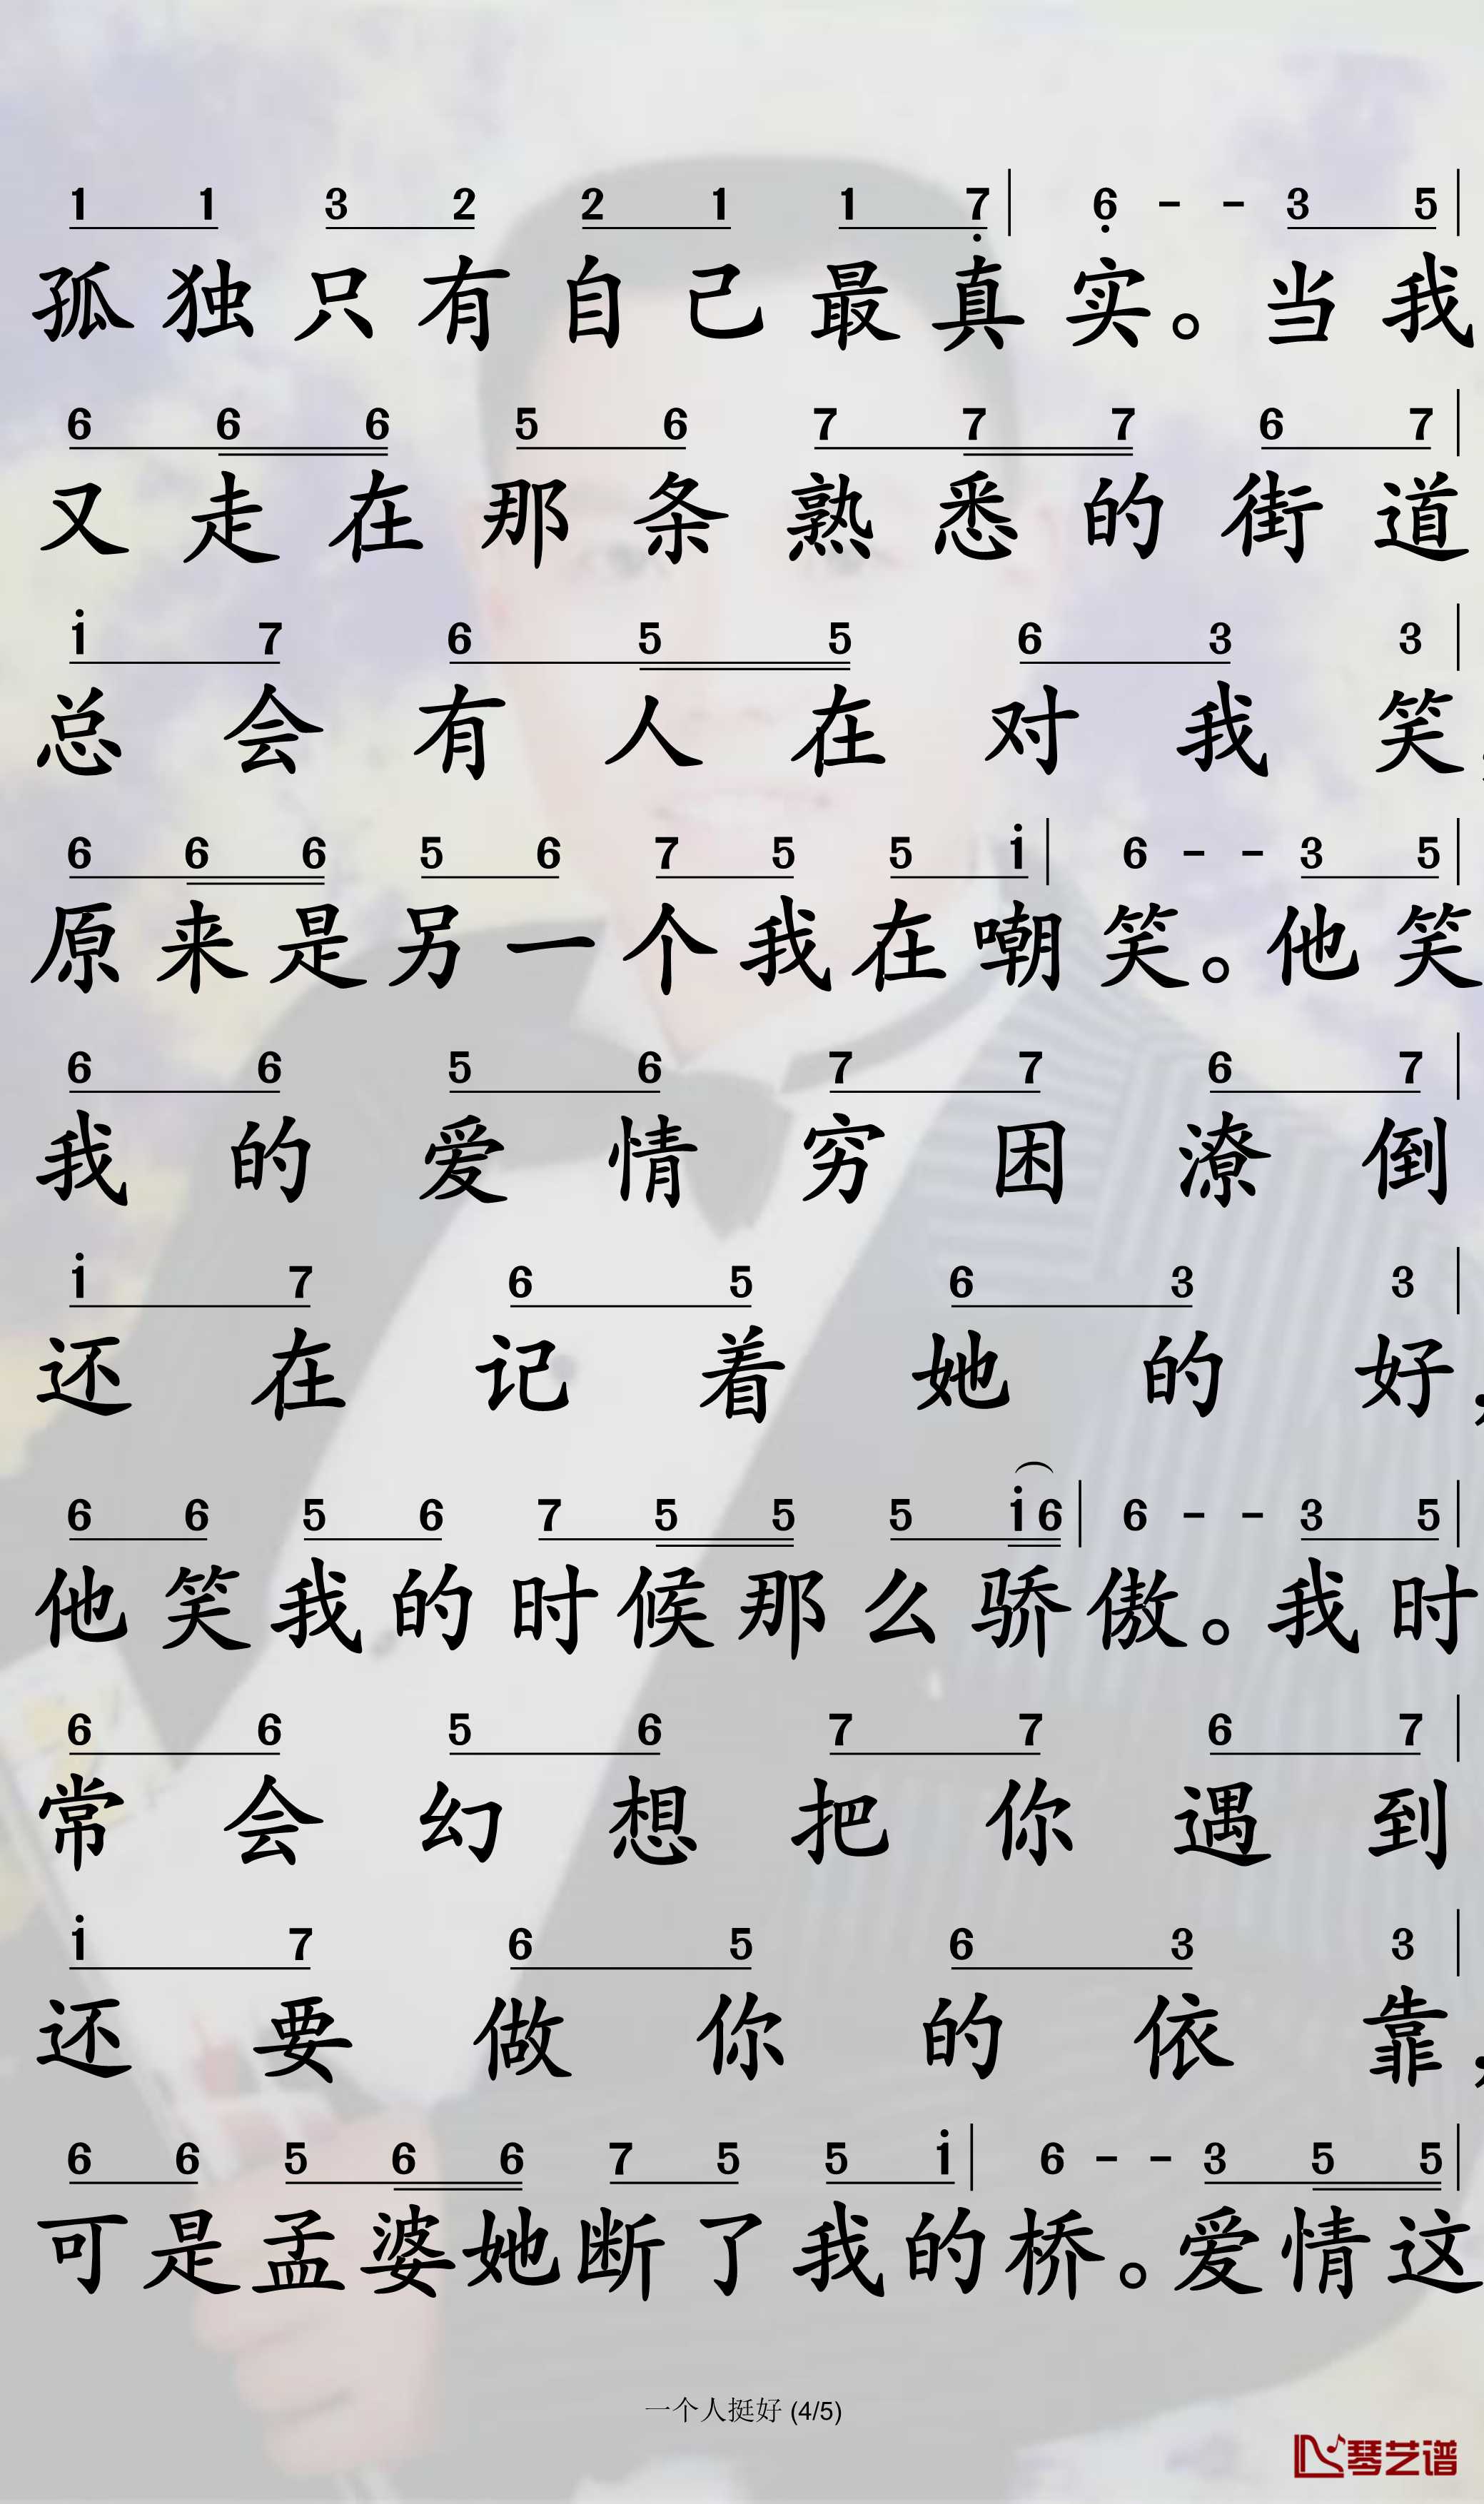 1 1 3 2 2 1 1 7̣ | 6̣ - - 3 5 |
孤独只有自己最真实。当我
6 6 6 5 6 7 7 7 6 7 |
又走在那条熟悉的街道
i 7 6 5 5 6 3 3 |
总会有人在对我笑，
6 6 6 5 6 7 5 5 i | 6 - - 3 5 |
原来是另一个我在嘲笑。他笑
6 6 5 6 7 7 6 7 |
我的爱情穷困潦倒
i 7 6 5 6 3 3 |
还在记着她的好，
6 6 5 6 7 5 5 5 i 6 | 6 - - 3 5 |
他笑我的时候那么骄傲。我时
6 6 5 6 7 7 6 7 |
常会幻想把你遇到
i 7 6 5 6 3 3 |
还要做你的依靠，
6 6 5 6 6 7 5 5 i | 6 - - 3 5 5 |
可是孟婆她断了我的桥。爱情这
一个人挺好 (4/5)
琴艺谱